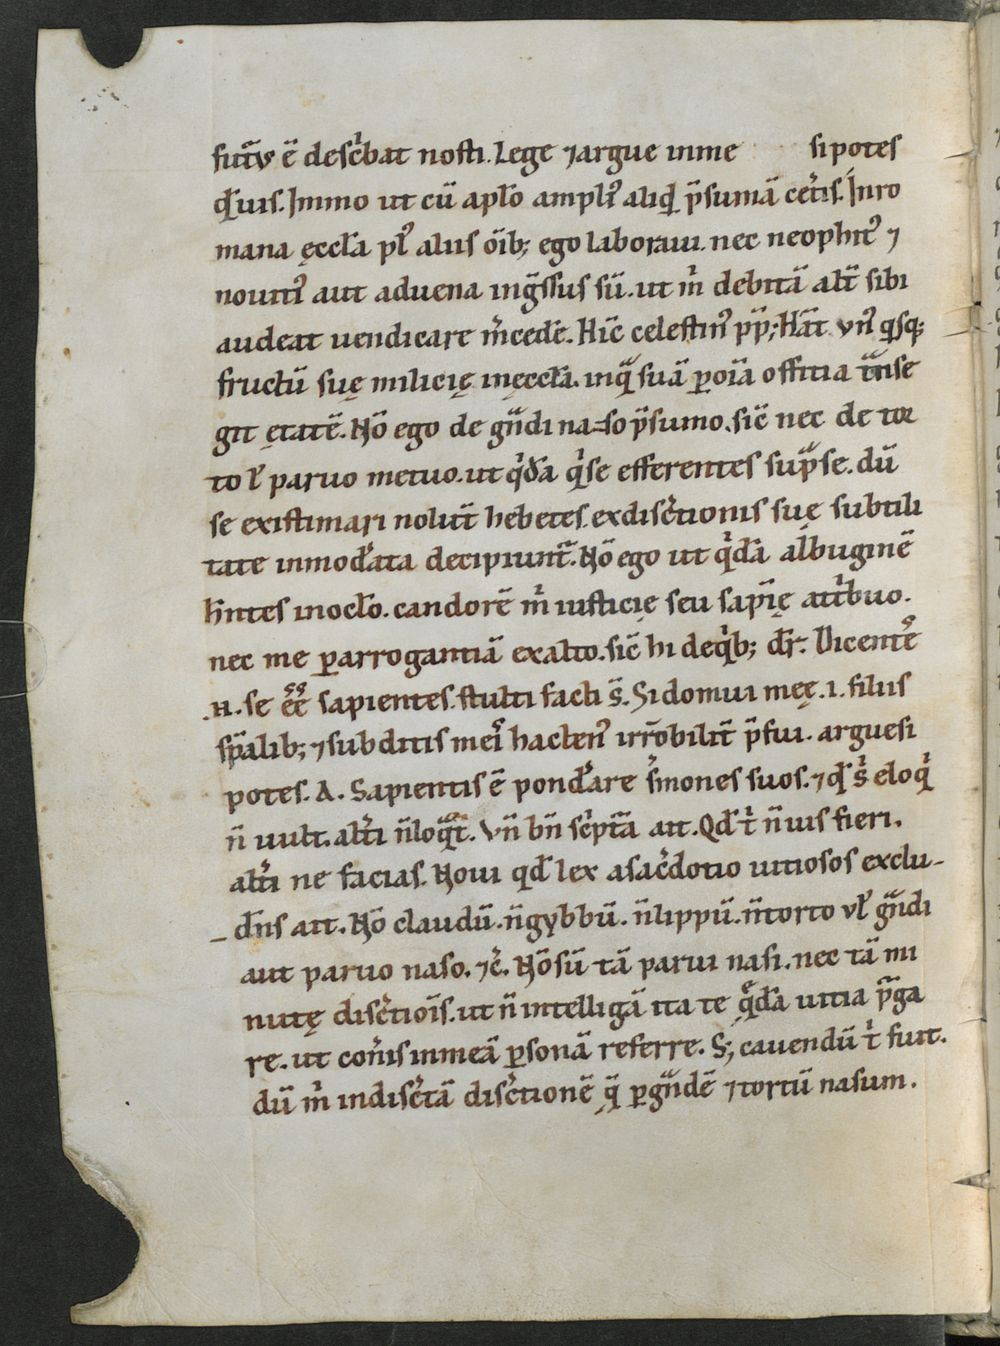 futv̄ ē desc̓bat nosti. Lege ⁊ argue in me si potes
qͥ uis. Immo ut cū apl̄o ampli᷒ aliqͥ p̄sumā cet̓is. In ro
mana ęccl̄a pl᷒ aliis oīb; ego laboraui. nec neophit᷒ ⁊
nouiti᷒ aut aduena ing̃ssus sū. ut m̓ debitā alt̄ sibi
audeat uendicare m̓cedē. Hic̄ celestin᷒ pp̄; Hāt vn᷒ qͥsq;
fructū suę milicię in ęccl̄a. in qͣ suā ꝑ oīa offitia tͣnse
git ętatē. Nō ego de gͣndi naso p̄sumo. sic̄ nec de tor
to l̓ paruo metuo. ut qͥdā qͥ se efferentes supͣ se. dū
se existimari nolūt hebetes. ex disc̓tionis suę subtili
tate inmod̓ata decipiunt̃. Nō ego ut qͥdā albuginē
hn̄tes in ocl̄o. candorē m̓ iusticię seu sapīę att̓buo.
nec me ꝑ arrogantiā exalto. sic̄ hi de qͥb; dr̄. Dicentes
.N. se eē̄ sapientes. stulti facti s̄. Si domui meę .i. filiis
sp̄alib; ⁊ subditis meis hacten᷒ irr̄obilit̄ p̄fui. argue si
potes. A. Sapientis ē pond̓are s̓mones suos. ⁊ qd̓ s̓ eloqͥ
n̄ uult. alt̓i n̄ loqͣt̃. Vn̄ bn̄ sc̓ptā ait. Qd̓ t̓ n̄ uis fieri.
alt̓i ne facias. Noui qd̓ lex a sac̓dotio uitiosos exclu-
-dn̄s ait. Nō claudū. n̄ gybbū. n̄ lippū. n̄ torto vl̓ gͣndi
aut paruo naso. ⁊c̓. Nō sū tā parui nasi. nec tā mi
nutę disc̓tiōis. ut n̄ intelligā ita te qͣdā uitia p̄ga
re. ut com̓is in meā ꝑsonā referre. S; cauendū t̓ fuit.
dū m̓ indisc̓tā disc̓tionē q̨̄ ꝑ gͣndē ⁊ tortū nasum.